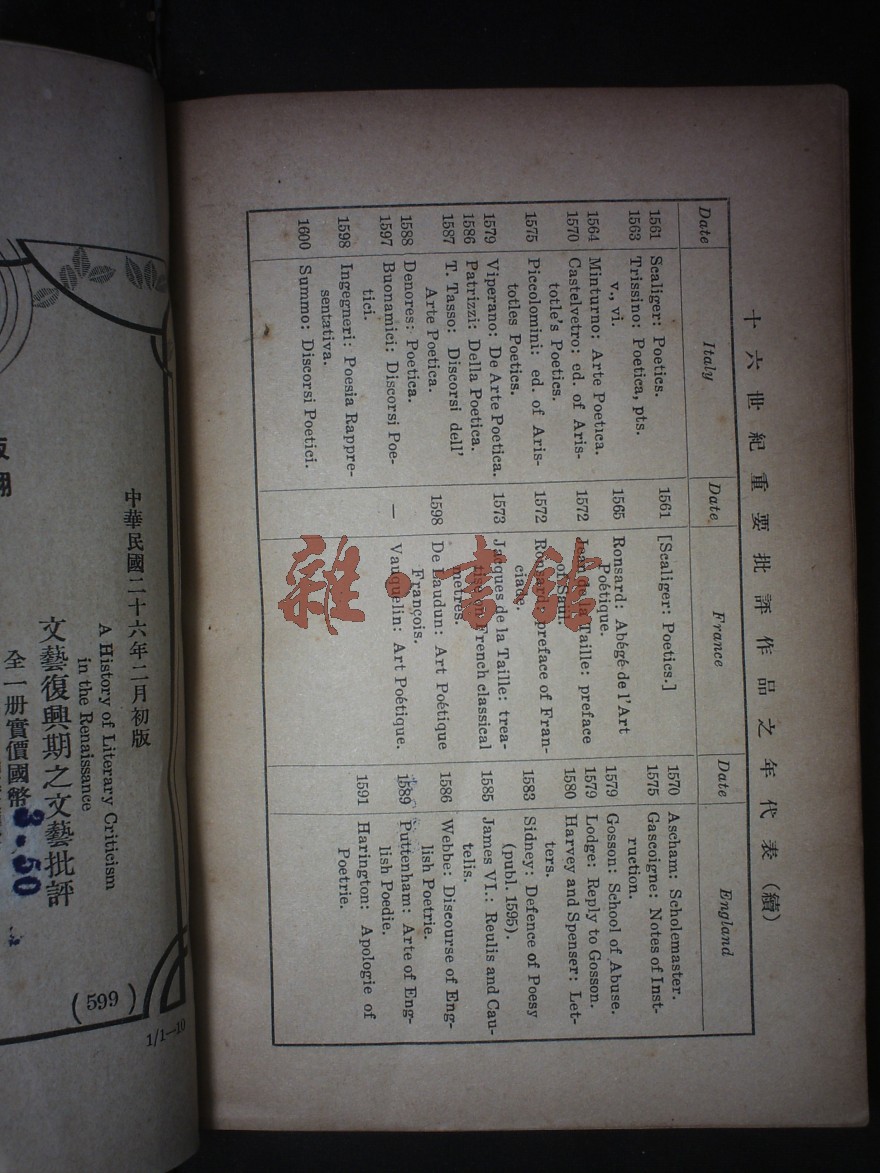 十六世紀重要批評作品之年代表(續)
Date Italy Date France Date England
1561 Scaliger: Poetics.
1563 Trissino: Poetica, pts.
v., vi.
1564 Minturno: Arte Poetica.
1570 Castelvetro: ed. of Aris-
totle's Poetics.
1575 Piccolomini: ed. of Aris-
totles Poetics.
1579 Viperano: De Arte Poetica.
1586 Patrizzi: Della Poetica.
1587 T. Tasso: Discorsi dell'
Arte Poetica.
1588 Denores: Poetica.
1597 Buonamici: Discorsi Poe-
tici.
1598 Ingegneri: Poesia Rappre-
sentativa.
1600 Summo: Discorsi Poetici.
1561 [Scaliger: Poetics.]
1565 Ronsard: Abégé de l'Art
Poétique.
1572 Jean de la Taille: preface
of Saul.
1572 Ronsard: preface of Fran-
ciade.
1573 Jacques de la Taille: trea-
tise on French classical
metres.
1598 De Laudun: Art Poétique
François.
— Vauquelin: Art Poétique.
1570 Ascham: Scholemaster.
1575 Gascoigne: Notes of Inst-
ruction.
1579 Gosson: School of Abuse.
1579 Lodge: Reply to Gosson.
1580 Harvey and Spenser: Let-
ters.
1583 Sidney: Defence of Poesy
(publ. 1595).
1585 James VI.: Reulis and Cau-
telis.
1586 Webbe: Discourse of Eng-
lish Poetrie.
1589 Puttenham: Arte of Eng-
lish Poedie.
1591 Harington: Apologie of
Poetrie.
中華民國二十六年二月初版
A History of Literary Criticism
in the Renaissance
文藝復興期之文藝批評
全一册實價國幣3.50
(599)
1/1—10
雜·書館